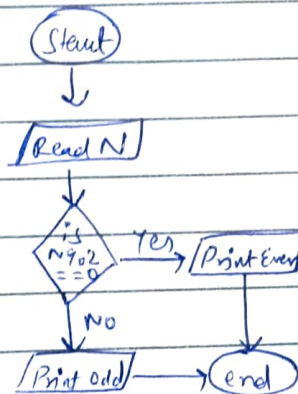 Start
Read N
is
N%2
==0
Yes
Print Even
No
Print odd
end